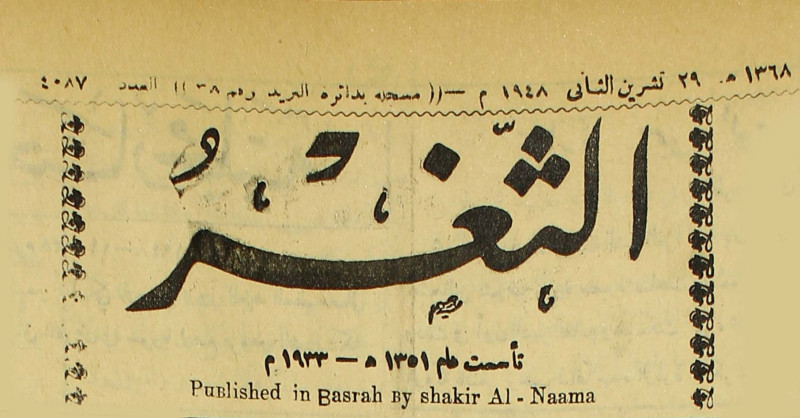 ١٣٦٨ هـ ٢٩ تشرين الثاني ١٩٤٨ م —(( مسجلة بدائرة البريد رقم ٣٨ )) العدد ٤٠٨٧
الثَّغْرُ
تأسست عام ١٣٥١ ه — ١٩٣٣ م
Published in Basrah By shakir Al - Naama